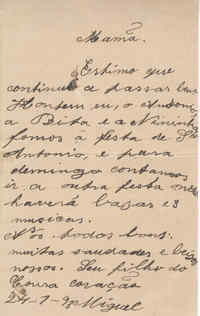 Mamãe.
Estimo que
continue a passar bem
Hontem eu, o Antonio
a Bita e a Nininha
fomos á festa de Sto
Antonio, e para
domingo contamos
ir a outra festa
haverá bazar e 3
musicas.
Nós todos bons.
muitas saudades e beijos
nossos. Seu filho do
coração
Miguel